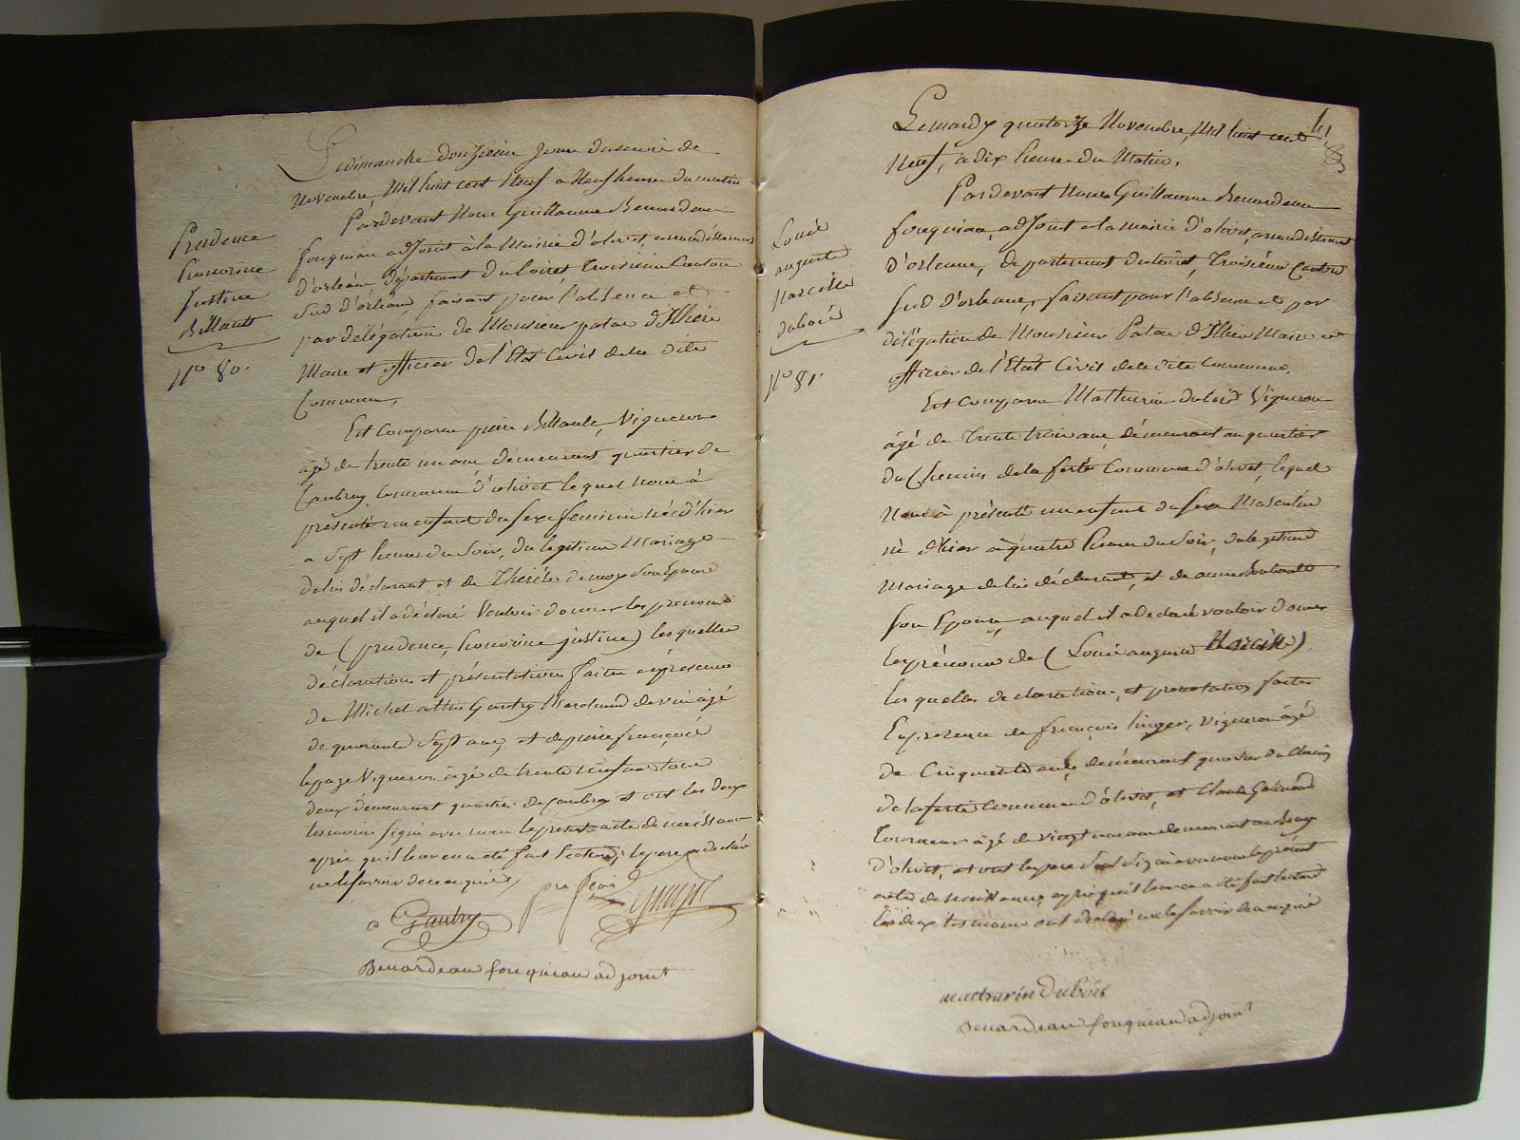 Le dimanche douzieme jour du mois de
Novembre, Mil huit cent Neuf a Neuf heures du matin
Pardevant Nous Guillaume Benardeau
fouqueau adjoint à la Mairie d'olivet, arrondissement
d'orleans, Département du Loiret Troisieme Canton
Sud d'orleans, faisant pour l'absence et
par délégation de Monsieur patas d'Illiers
Maire et officier de l'Etat Civil de la dite
Commune,
Prudence
honorine
Justine
Billault
No 80.
Est Comparu pierre Billault, Vigneron
agé de trente un ans demeurant quartier de
Caubray Commune d'olivet lequel nous à
présenté un enfant du sexe feminin né d'hier
a Sept heures du Soir, du legitime Mariage
de lui déclarant et de Thérèse Son Epouse
auquel il a déclaré Vouloir donner les prenoms
de (prudence, honorine justine) les quelles
déclaration et présentation faites en présence
de Michel Gaudry Marchand de vin agé
de quarante Sept ans, et de pierre françois
lepage Vigneron agé de trente neuf ans tous
deux demeurant quartier de Caubray et ont les deux
temoins signé avec nous le present acte de naissance
après qu'il leur en a été fait Lecture, le pere a declaré
ne le savoir de ce enquis
Gaudry
Benardeau fouqueau adjoint
Le mardy quatorze Novembre, Mil huit cent
Neuf, a dix heures du Matin.
Pardevant Nous Guillaume Benardeau
fouqueau, adjoint a la mairie d'olivet, arrondissement
d'orleans, departement du loiret, Troisieme Canton
Sud d'orleans, faisant pour l'absence et par
délégation de Monsieur Patas d'Illiers Maire et
officier de l'Etat Civil de la dite Commune.
Louis
auguste
Narcisse
dubois
No 81.
Est Comparu Mathurin dubois Vigneron
âgé de Trente trois ans, demeurant au quartier
du Chemin de la ferté Commune d'olivet, lequel
Nous à présenté un enfant du sexe Masculin
né d'hier à quatre heures du Soir, du legitime
Mariage de lui déclarant, et de anne
Son Epouse, auquel il a declaré vouloir donner
les prénoms de (Louis auguste Narcisse)
les quelles declaration, et presentation faites
En presence de françois linger, vigneron âgé
de Cinquante ans, demeurant quartier du Chemin
de la ferté Commune d'olivet, et Claude
Tonneur âgé de vingt un ans demeurant au Bourg
d'olivet, et ont le pere Seul Signé avec nous le présent
acte de naissance, apres qu'il leur en a été fait lecture
les deux temoins ont declaré ne le savoir de ce enquis
mathurin dubois
Benardeau fouqueau adjoint